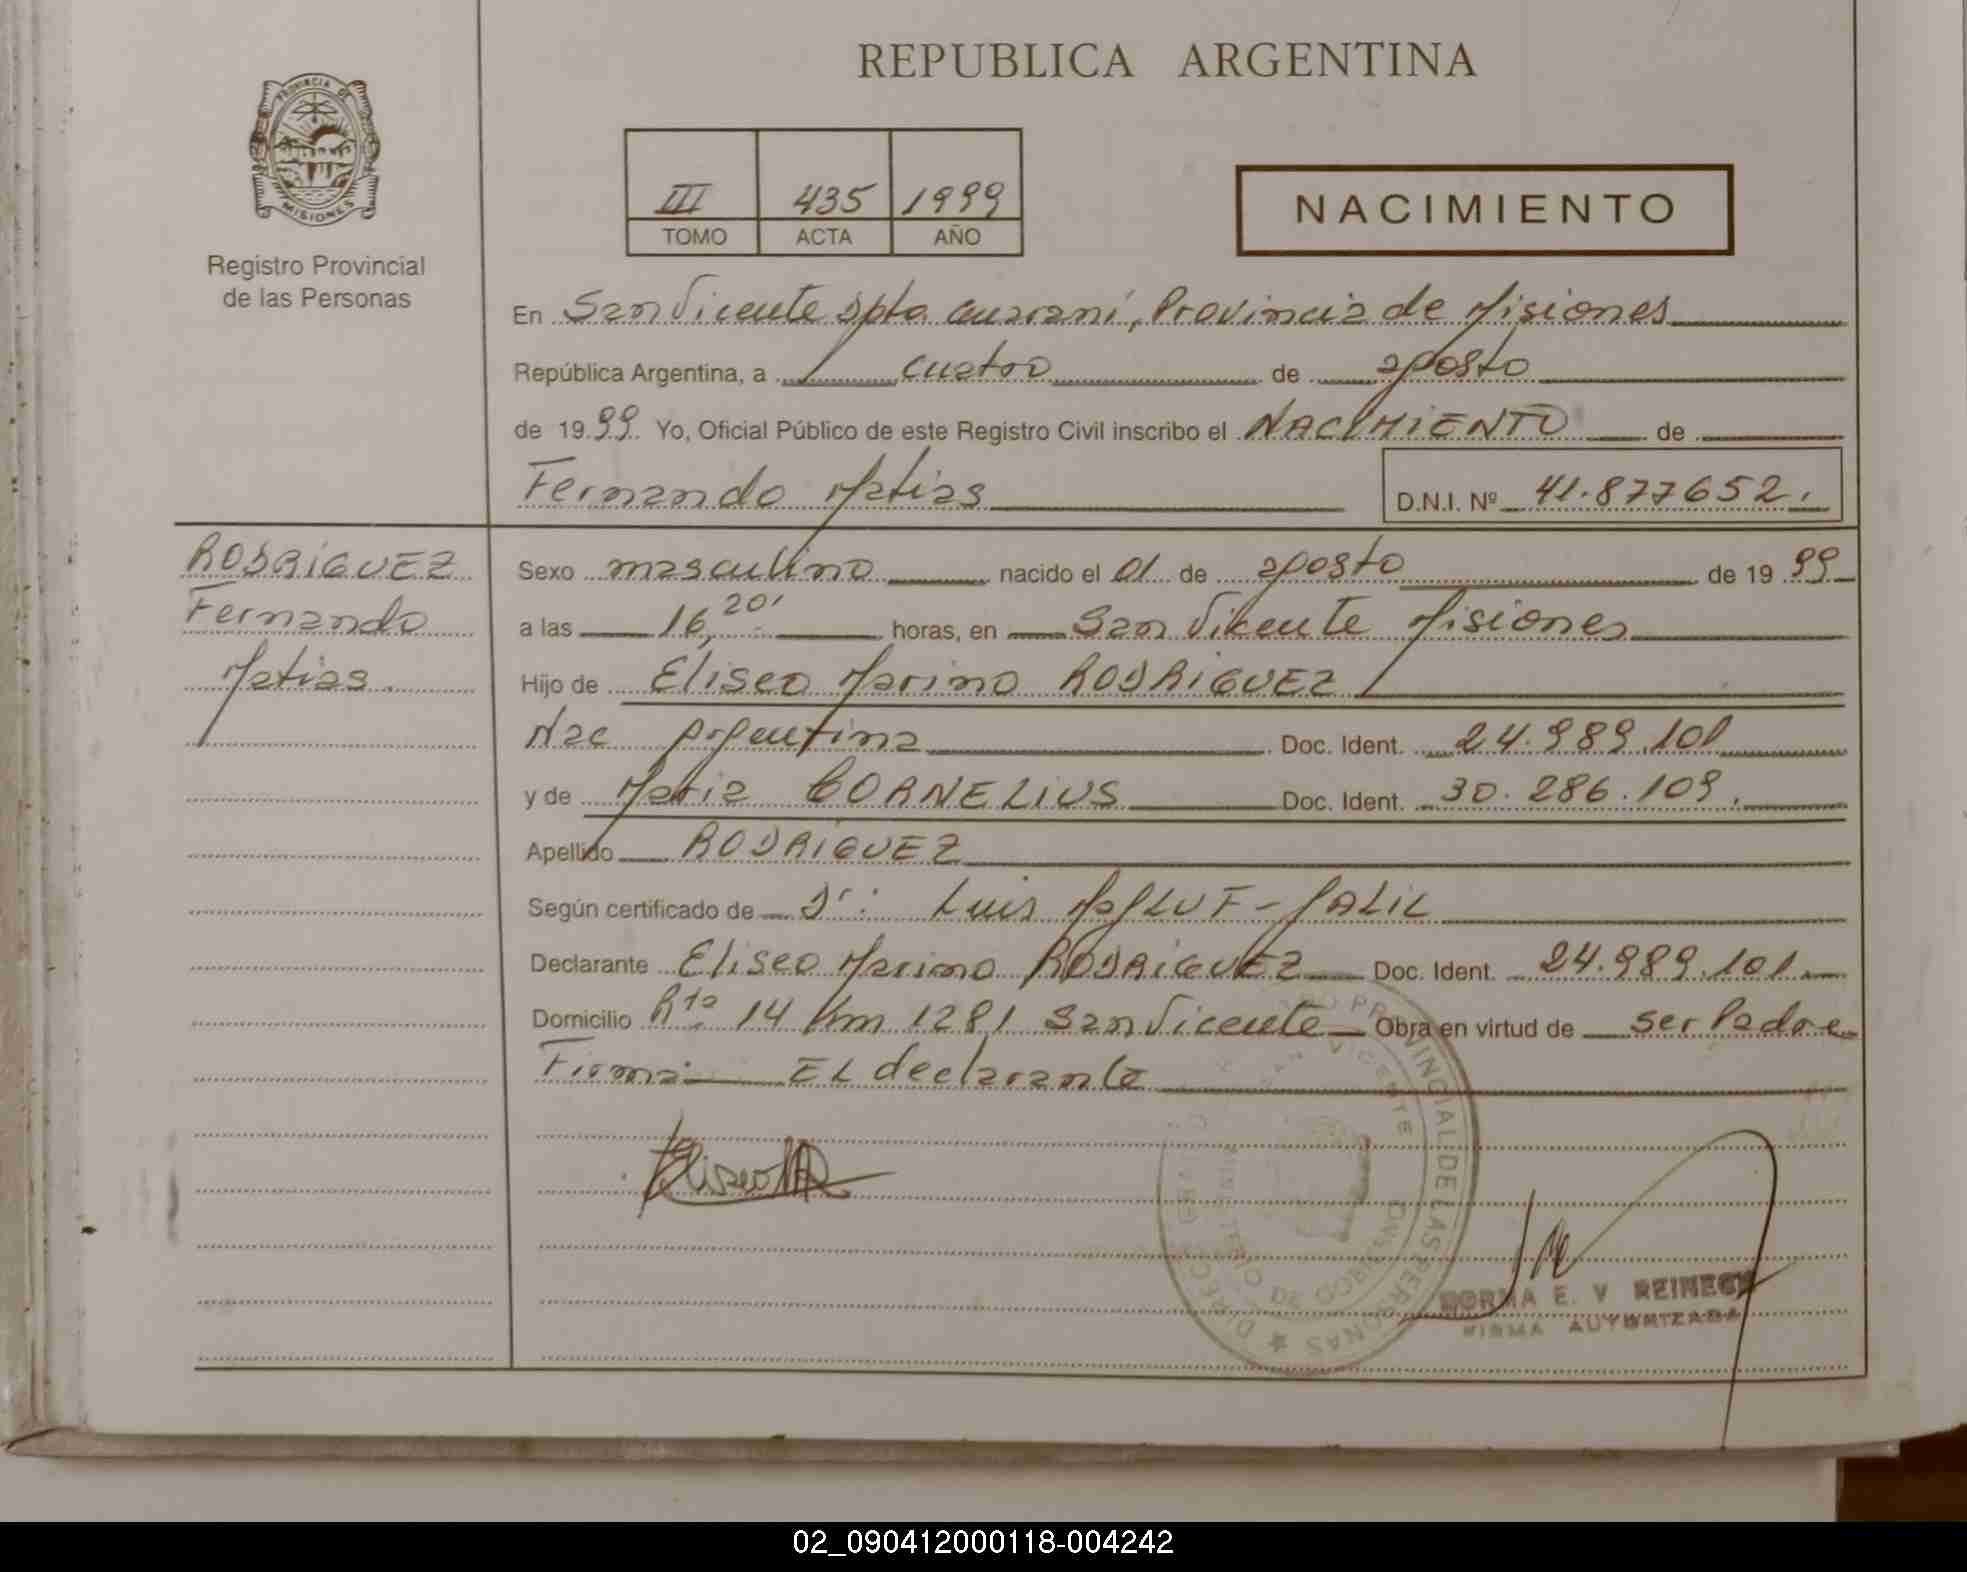 REPUBLICA ARGENTINA
PROVINCIA DE MISIONES
Registro Provincial
de las Personas
III 435 1999
TOMO ACTA AÑO
NACIMIENTO
En San Vicente Dpto Guaraní, Provincia de Misiones
República Argentina, a cuatro de agosto
de 1999 Yo, Oficial Público de este Registro Civil inscribo el NACIMIENTO de
Fernando Matias D.N.I. Nº 41.877652.
RODRIGUEZ
Fernando
Matias.
Sexo masculino nacido el 01 de agosto de 1999
a las 16,20' horas, en San Vicente Misiones
Hijo de Eliseo Marino RODRIGUEZ
Nac Argentina Doc. Ident. 24.989.101
y de Maria CORNELIUS Doc. Ident. 30.286.109.
Apellido RODRIGUEZ
Según certificado de Dr: Luis MaLUF-JALIL
Declarante Eliseo Marino RODRIGUEZ Doc. Ident. 24.989.101
Domicilio Rta 14 Km 1281 San Vicente Obra en virtud de ser Padre
Firma: EL declarante
Eliseo MR
PROVINCIAL DE LAS PERSONAS ★ DIRECC
SAN VICENTE
MINISTERIO DE GOBIERNO
NORMA E. V REINECK
FIRMA AUTORIZADA
02_090412000118-004242